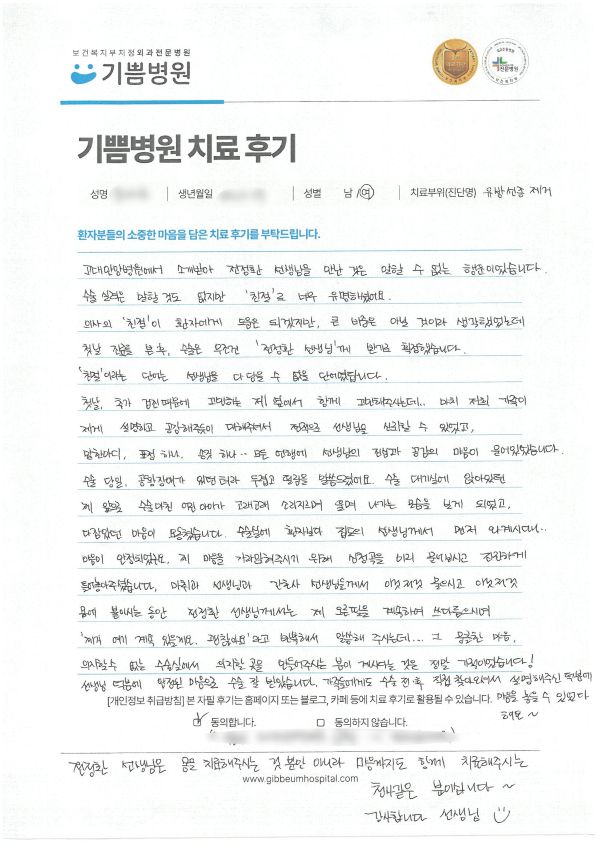 보건복지부지정 외과전문병원
기쁨병원
기쁨병원 치료 후기
성명 생년월일 성별 남/여 치료부위(진단명) 유방선종 제거
환자분들의 소중한 마음을 담은 치료 후기를 부탁드립니다.
고대안암병원에서 소개받아 전정환 선생님을 만난 것은 말할 수 없는 행운이었습니다.
수술 실력은 말할 것도 없지만 '친절'로 너무 유명하셨어요.
의사의 '친절'이 환자에게 도움은 되겠지만, 큰 비중은 아닐 것이라 생각했었는데
첫날 진료를 본 후, 수술은 무조건 '전정환 선생님'께 받기로 확정했습니다.
'친절'이라는 단어는 선생님을 다 담을 수 없을 단어였답니다.
첫날, 추가 검진 때문에 고민하는 제 옆에서 함께 고민해주시는데.. 마치 저희 가족이
제게 설명하고 공감해주듯이 대해주셔서 전적으로 선생님을 신뢰할 수 있었고,
말한마디, 표정 하나, 손길 하나.. 모든 언행에 선생님의 진심과 공감의 마음이 묻어있었습니다.
수술 당일, 공황장애가 있었던터라 두렵고 떨림을 말씀드렸어요. 수술 대기실에 앉아있는데
제 앞으로 수술마친 여자 아이가 고래고래 소리지르며 울며 나가는 모습을 보게 되었고,
다잡았던 마음이 요동쳤습니다. 수술실에 환자보다 집도의 선생님께서 먼저 와계시다니..
마음이 안정되었어요. 제 마음을 가라앉혀주시기 위해 신청곡을 미리 물어보시고 잔잔하게
틀어놓아주셨습니다. 마취과 선생님과 간호사 선생님들께서 이것저것 물으시고 이것저것
몸에 붙이시는 동안 전정환 선생님께서는 제 오른팔을 계속하여 쓰다듬으시며
"제가 여기 계속 있을게요. 괜찮아요"라고 반복해서 말씀해 주시는데... 그 뭉클한 마음.
의지할수 없는 수술실에서 의지할 곳을 만들어주시는 분이 계시다는 것은 정말 기적이었습니다!
선생님 덕분에 안정된 마음으로 수술 잘 받았습니다. 가족들에게도 수술 전·후 직접 찾아오셔서 설명해주신 덕분에
[개인정보 취급방침] 본 자필 후기는 홈페이지 또는 블로그, 카페 등에 치료 후기로 활용될 수 있습니다. 마음을 놓을 수 있었다
동의합니다. 동의하지 않습니다. 해요~
전정환 선생님은 몸을 치료해주시는 것 뿐만 아니라 마음까지도 함께 치료해주시는
www.gibbeumhospital.com
천사같은 분이십니다~
감사합니다 선생님